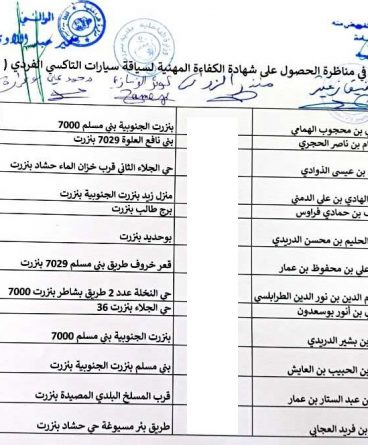 في مناظرة الحصول على شهادة الكفاءة المهنية لسياقة سيارات التاكسي الفردي (
بن محجوب الهمامي بنزرت الجنوبية بني مسلم 7000
بن ناصر الحجري بني نافع العلوة 7029 بنزرت
بن عيسى الذوادي حي الجلاء الثاني قرب خزان الماء حشاد بنزرت
الهادي بن علي الدمني منزل زيد بنزرت الجنوبية بنزرت
بن حمادي فراوس برج طالب بنزرت
الحليم بن محسن الدريدي بوحديد بنزرت
علي بن محفوظ بن عمار قعر خروف طريق بني مسلم 7029 بنزرت
الدين بن نور الدين الطرابلسي حي النخلة عدد 2 طريق بشاطر بنزرت 7000
بن أنور بوسعدون حي الجلاء بنزرت 36
بن بشير الدريدي بنزرت الجنوبية بني مسلم 7000
بن الحبيب بن العايش بني مسلم بنزرت الجنوبية بنزرت
بن عبد الستار بن عمار قرب المسلخ البلدي المصيدة بنزرت
بن فريد العجابي طريق بئر مسيوغة حي حشاد بنزرت